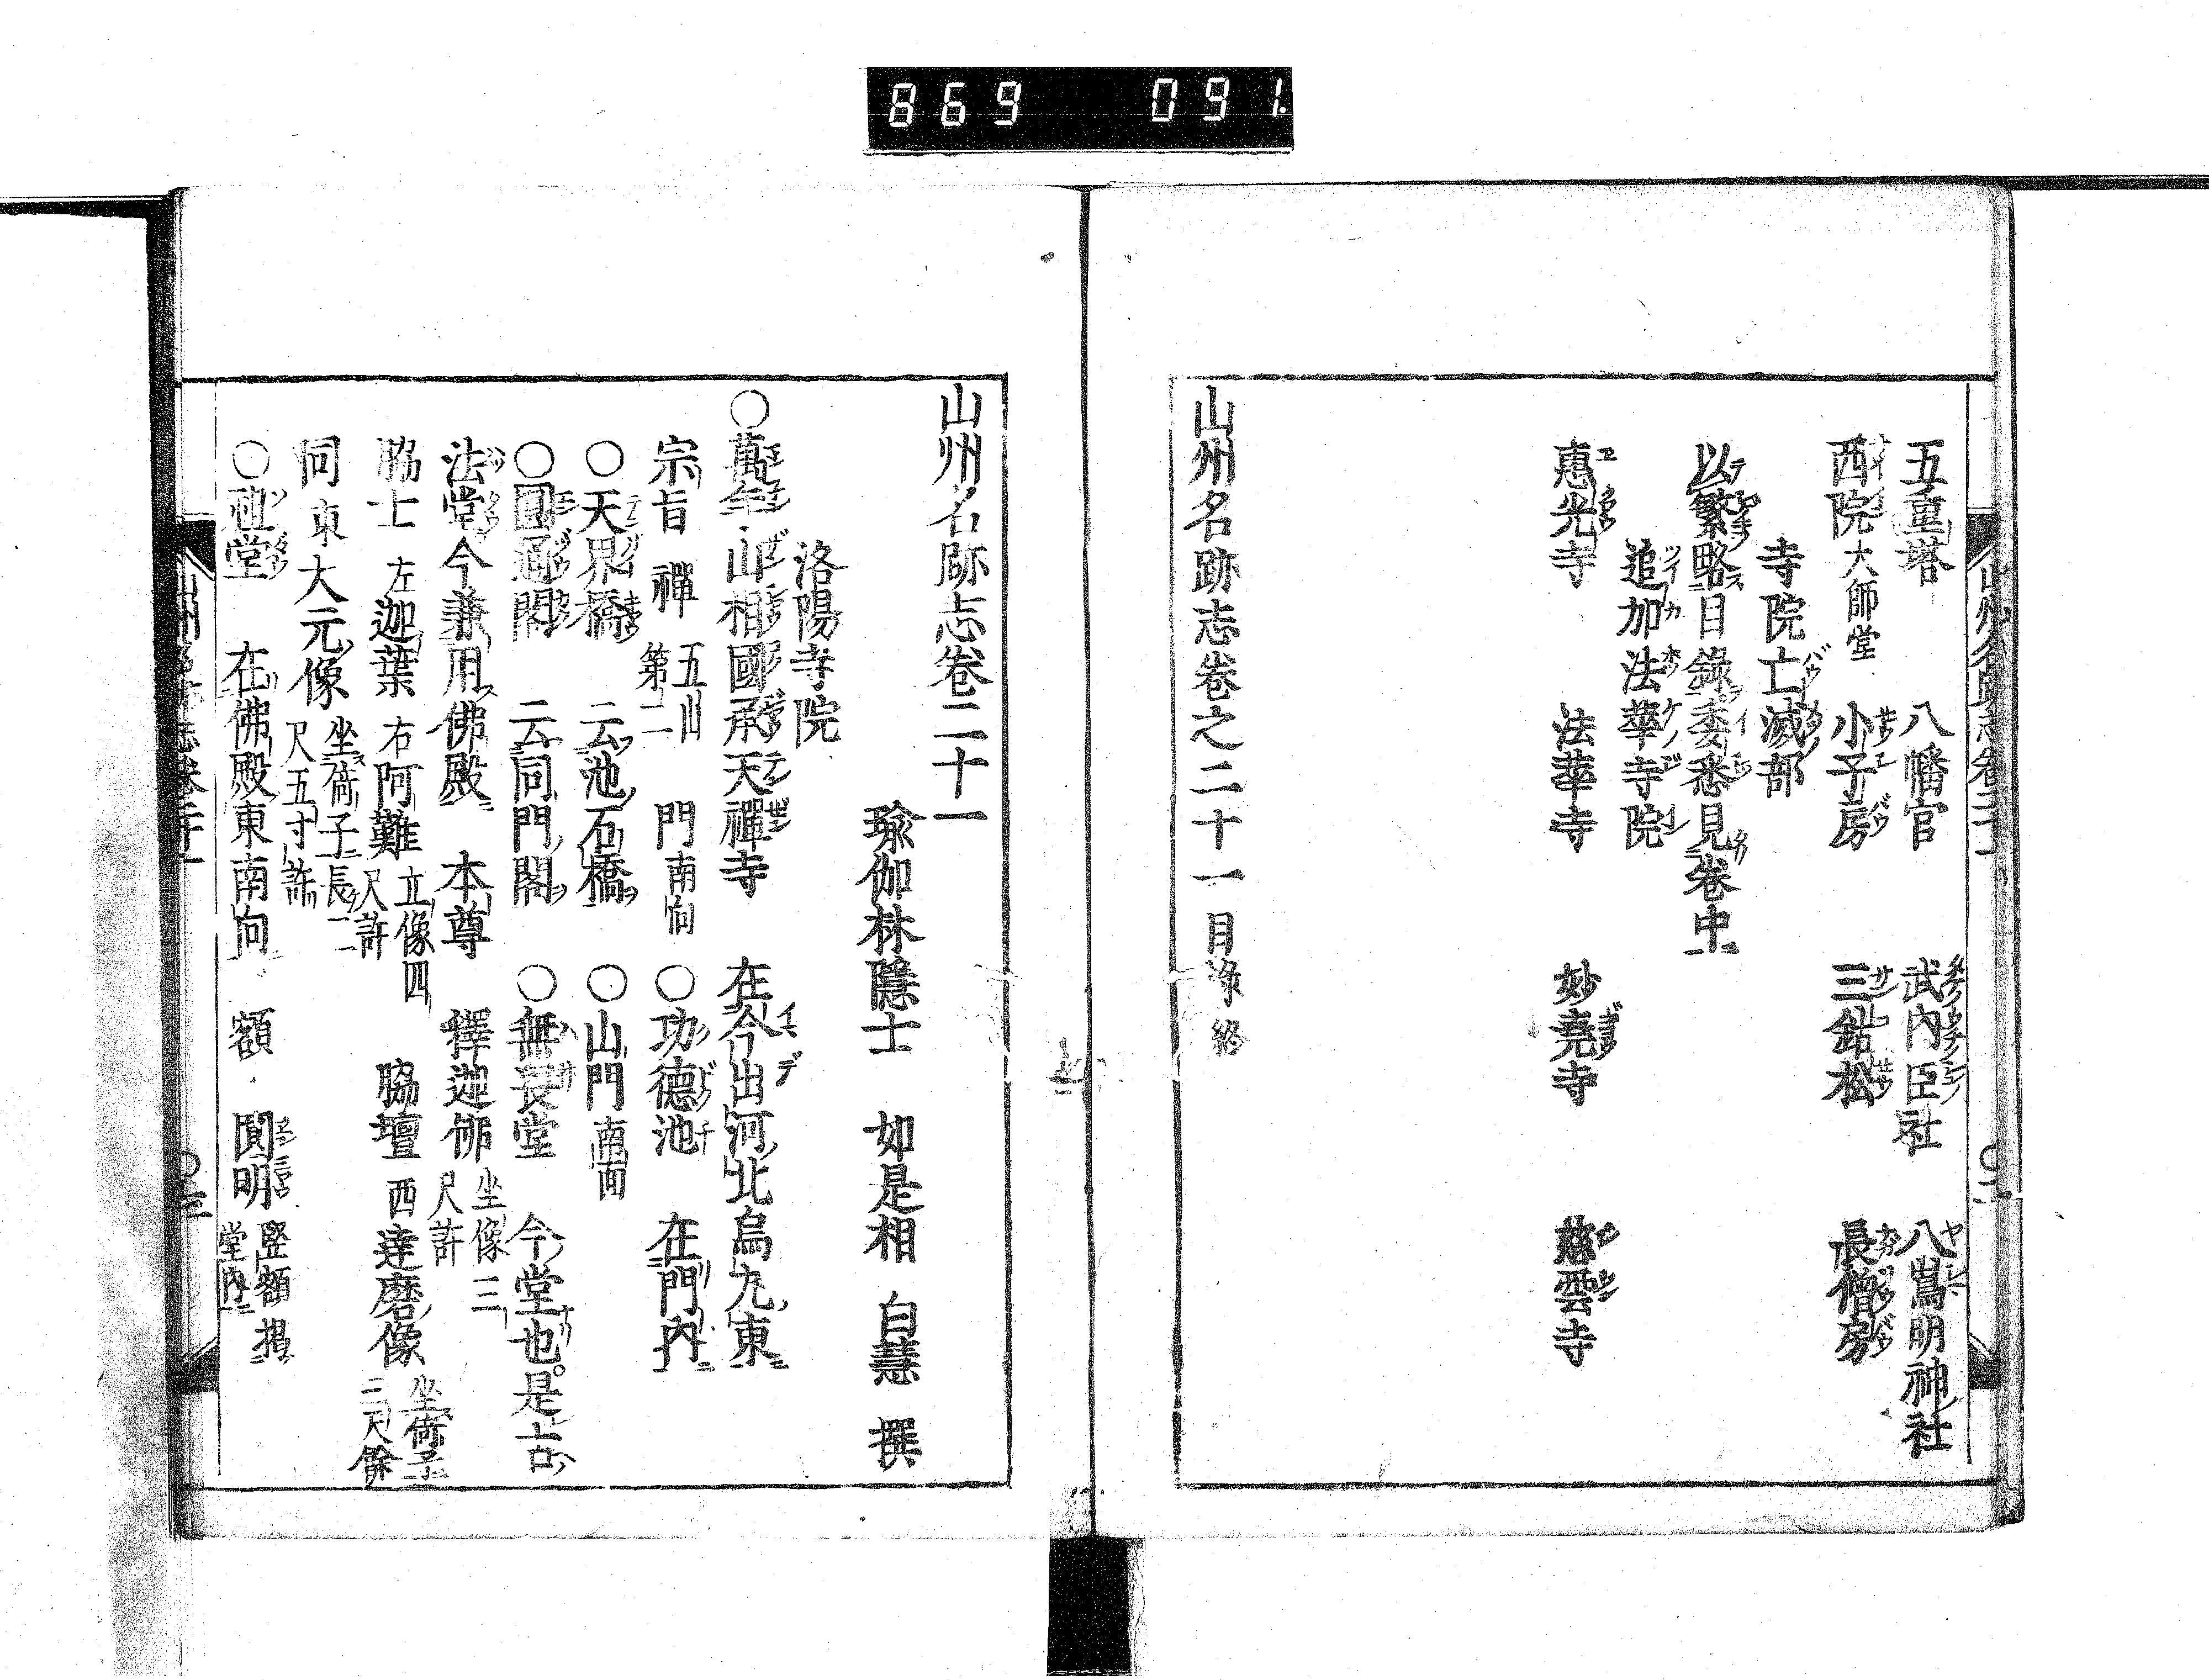 869 091
五重塔 八幡宮 武内臣社 八嶌明神社
西院 大師堂 小子房 三鈷松 長僧房
寺院亡滅部
以繁略目錄委悉見卷中
追加法華寺院
惠光寺 法華寺 妙堯寺 慈雲寺
山州名跡志卷之二十一目录 終
山州名跡志卷二十一
瑜伽林隱士 如是相 白慧 撰
洛陽寺院
○萬年山相國承天禪寺 在今出河北烏丸東
宗旨 禪 五山第二 門 南向 ○功德池 在門內
○天界橋 云池石橋 ○山門 南面
○圓通閣 云同門閣 ○無畏堂 今堂也是古
法堂今兼用佛殿 本尊 釋迦佛 坐像三尺許
脇士 左迦葉 右阿難 立像四尺許 脇壇 西達磨像 坐倚子二尺餘
同東大元像 坐倚子長一尺五寸許
○祖堂 在佛殿東南向 額 圓明 竪額揭堂內